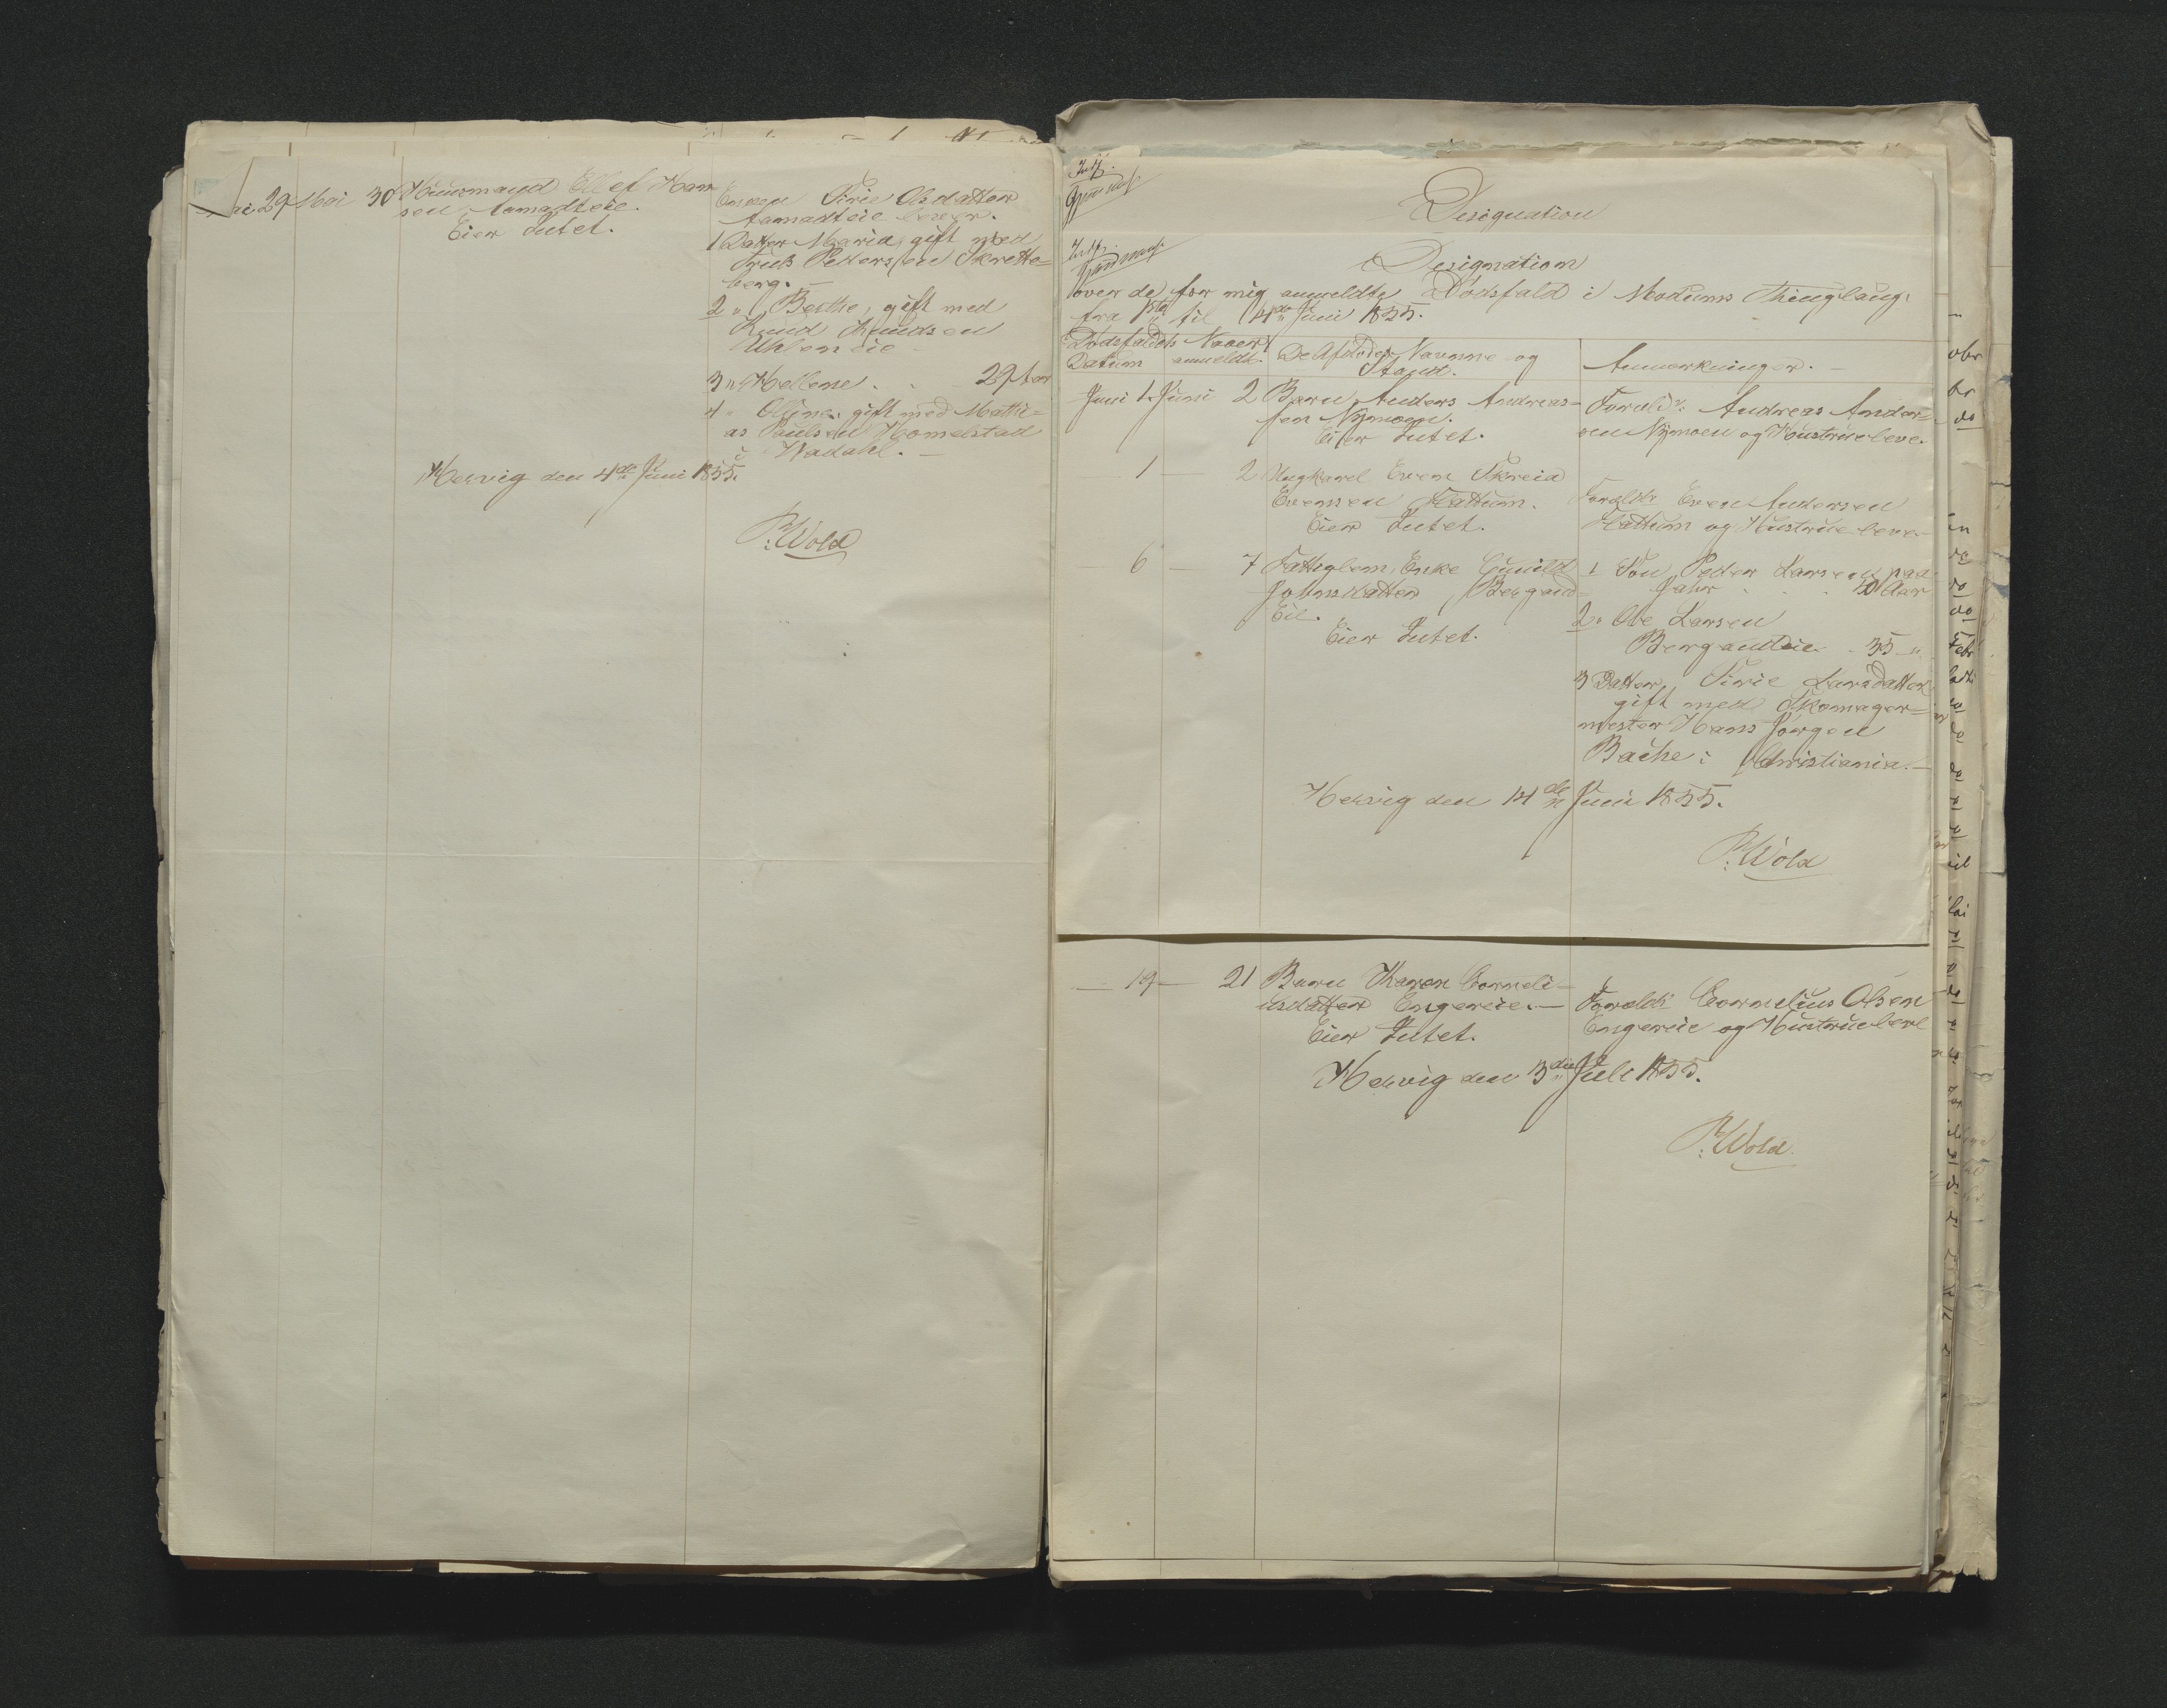 29 Mai 30 Huusmand Ellef Han-
sen Aamodteie.
Eier Intet.
Enken Sirie Olsdatter
Aamodteie lever.
1 Datter Maria, gift med
Truls Pedersen Skrette-
berg.
2 " Berthe, gift med
Knud Knudsen
Uhleneie
3 " Hellene . . 29 Aar
4 " Olline, gift med Mathi-
as Paulsen Homelstad
i Hadahl.
Hervig den 4de Juni 1855.
P. Wold
Designation
Designation
over de for mig anmeldte Dødsfald i Modums Thinglaug,
fra 1ste til 14de Juni 1855.
Dødsfaldets Datum
Naar anmeldt.
De Afdødes Navnne og
Stand.
Anmærkninger.
Juni 1 Juni 2 Barn Anders Andreas-
sen Nymoen.
Eier Intet.
Foræld: Andreas Ander-
sen Nymoen og Hustrue leve.
1 — 2 Ungkarl Even Skreia
Evensen Hattum.
Eier Intet.
Foræld: Even Andersen
Hattum og Hustrue leve.
6 — 7 Fattiglem, Enke Gunild
Johnsdatter Bergand-
Eie.
Eier Intet.
1 Søn Peder Larsen paa
40 Aar
2 " Ole Larsen
Bergandeie . 35 "
3 Datter, Sirie Larsdatter
gift med Skomager-
mester Hans Jørgen
Bache i Christiania.
Hervig den 14de Juni 1855.
P. Wold
— 19 — 21 Barn Karen Corneli-
usdatter Engereie.
Eier Intet.
Foræld: Cornelius Olsen
Engereie og Hustrue leve
Hervig den 3die Juli 1855.
P. Wold